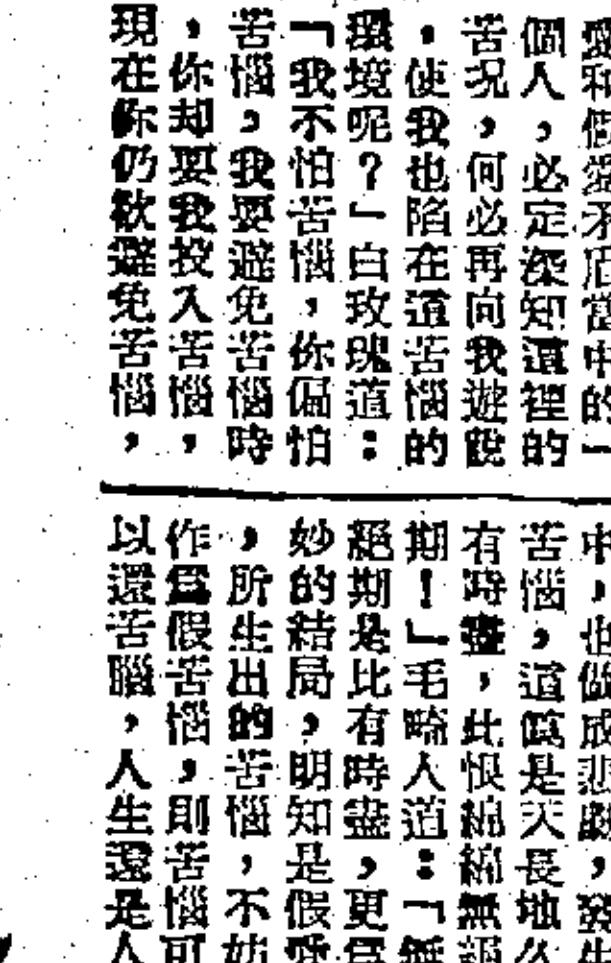 愛和假愛矛盾當中的一
個人，必定深知這裡的
苦况，何必再向我遊說
，使我也陷在這苦惱的
環境呢？」白玫瑰道：
「我不怕苦惱，你偏怕
苦惱，我要避免苦惱時
，你却要我投入苦惱，
現在你仍欲避免苦惱，
中，也做成悲劇，發生
苦惱，這真是天長地久
有時盡，此恨綿綿無絕
期！」毛畸人道：「無
絕期是比有時盡，更爲
妙的結局，明知是假愛
，所生出的苦惱，不妨
作爲假苦惱，則苦惱可
以還苦腦，人生還是人